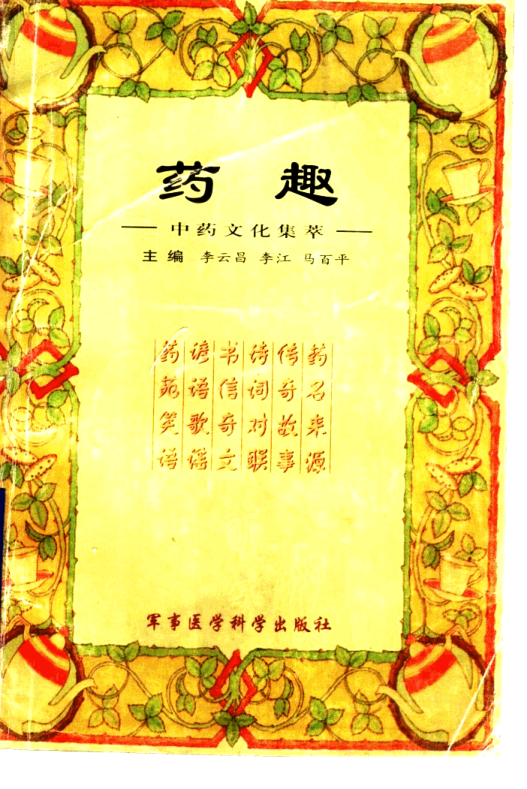 药趣
中药文化集萃
主编 李云昌 李江 马百平
药名来源
传奇故事
诗词对联
书信奇文
谚语歌谣
药苑笑语
军事医学科学出版社